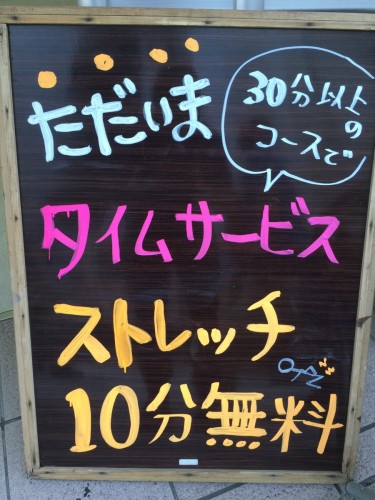 ただいま
30分以上
の
コースで
タイムサービス
ストレッチ
10分無料